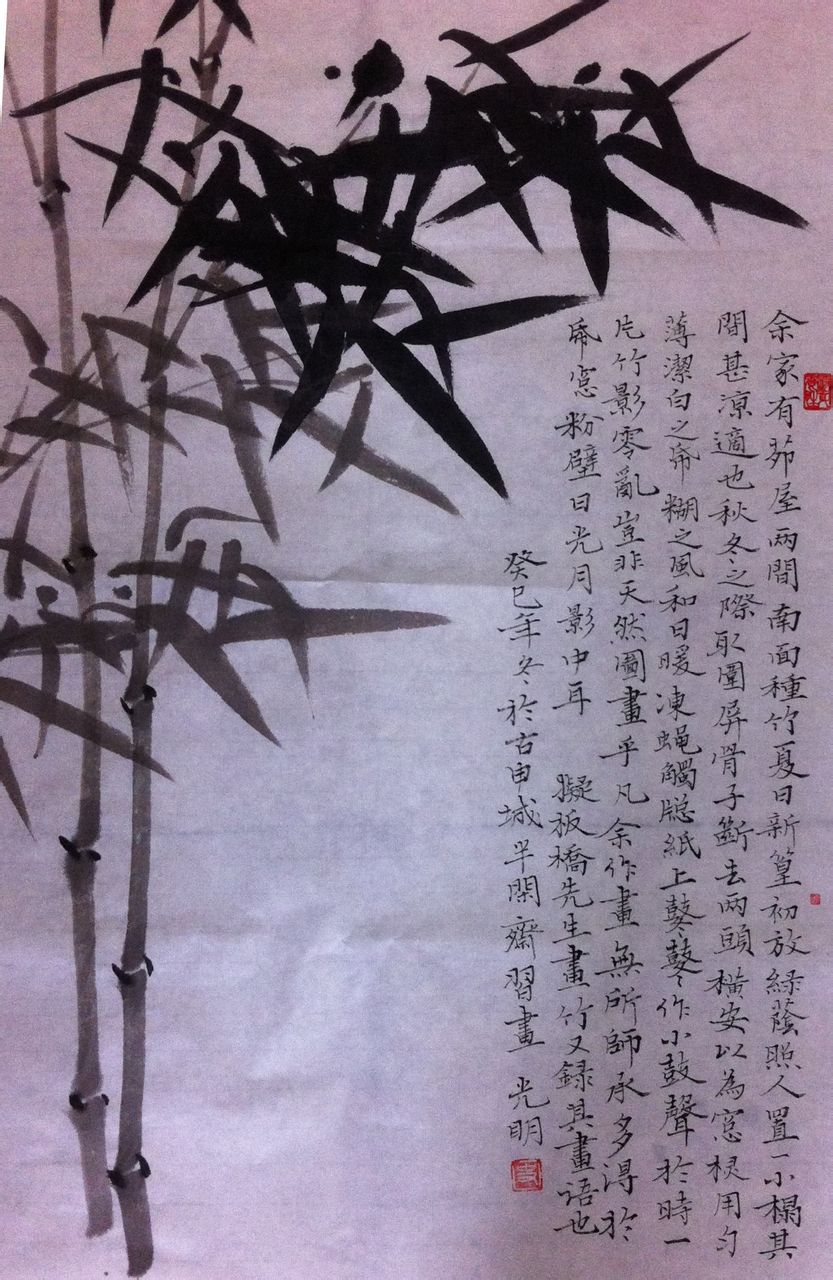 余家有茆屋兩間南面種竹夏日新篁初放綠蔭照人置一小榻其
間甚凉適也秋冬之際取圍屏骨子斷去兩頭橫安以為窓櫺用勻
薄潔白之帋糊之風和日暖凍蝇觸牕紙上鼕〻鼕〻作小鼓聲於時一
片竹影零亂豈非天然圖畫乎凡余作畫無所師承多得於
帋窓粉壁日光月影中耳 擬板橋先生畫竹又録其畫語也
癸巳年冬於古申城半閑齋習畫 光明